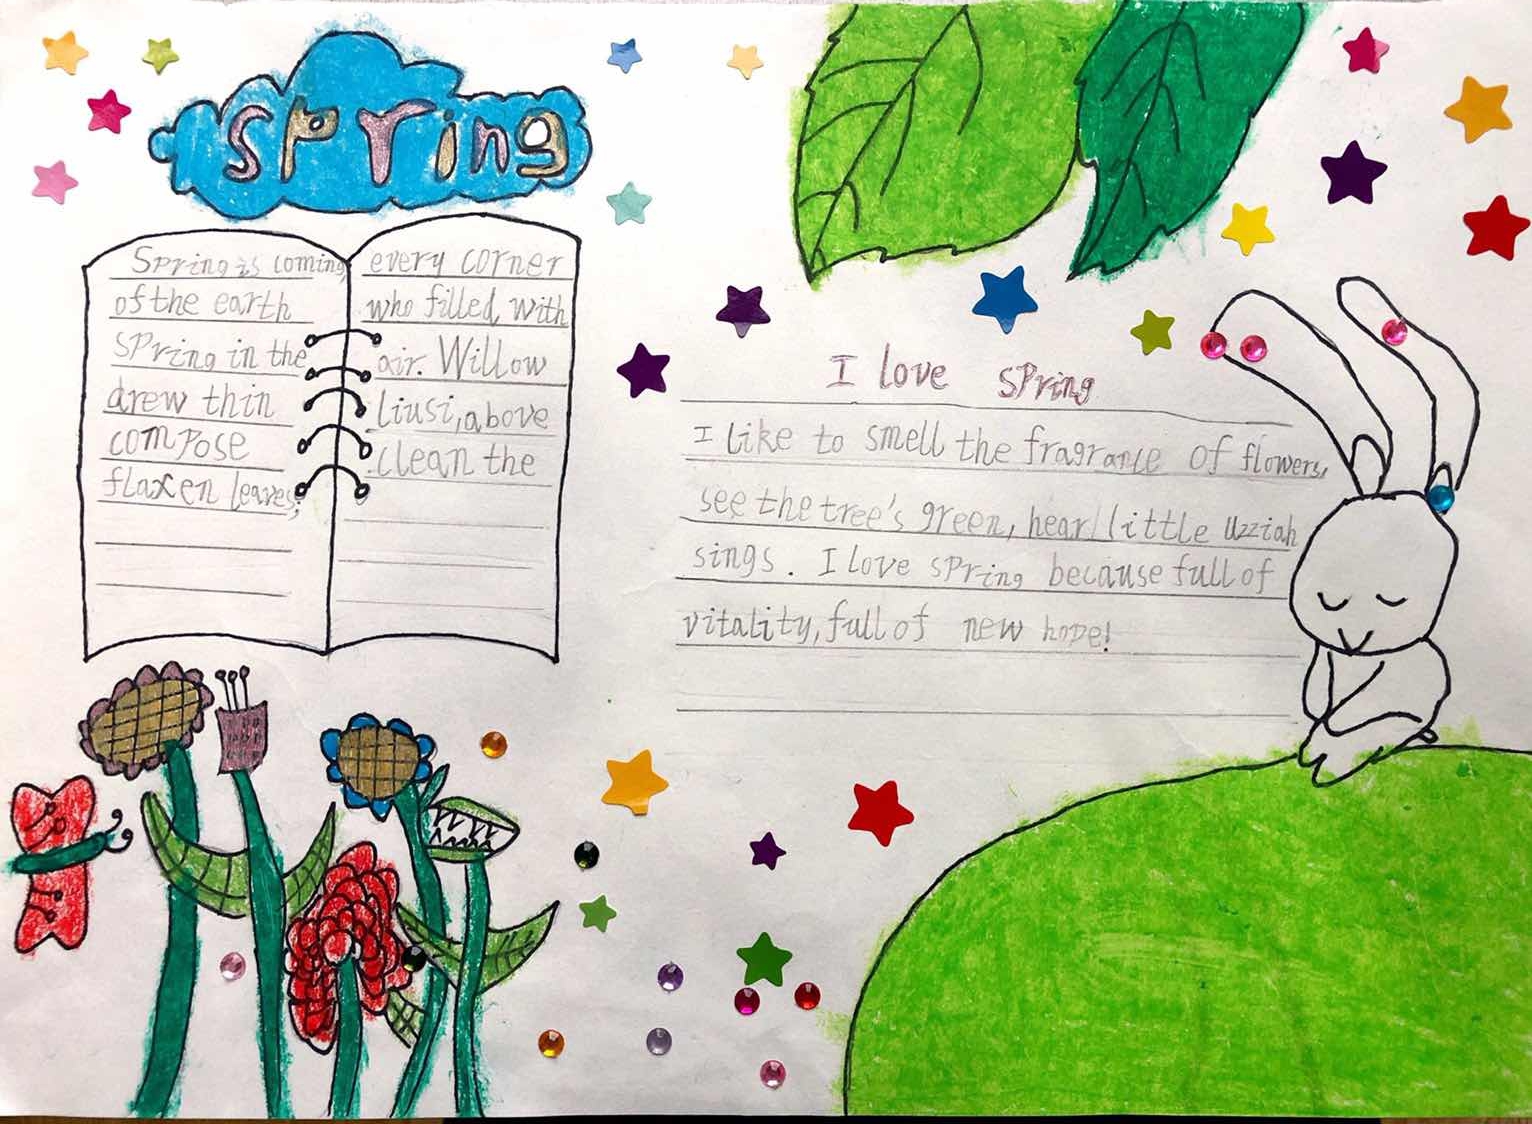 Spring
Spring is coming,
of the earth
spring in the
drew thin
compose
flaxen leaves;
every corner
who filled with
air. Willow
Liusi, above
clean the
I love spring
I like to smell the fragrance of flowers,
see the tree's green, hear little uzziah
sings. I love spring because full of
vitality, full of new hope!